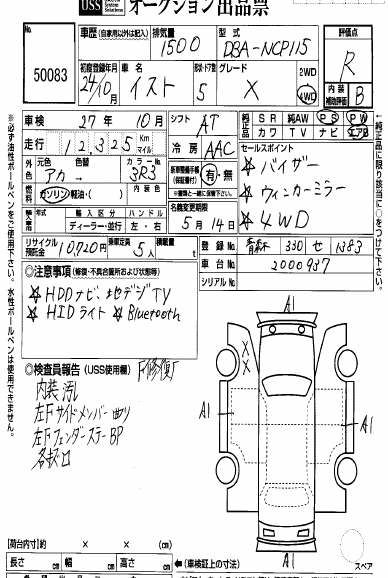 USS オークション出品票
No. 50083
車歴(自家用以外は記入) 排気量 1500 型式 DBA-NCP115
評価点 R
初度登録年月 24/10月 車名 イスト 形状・ドア数 5 グレード X 2WD 4WD
内装補助評価 B
車検 27年 10月 シフト AT
純正品 SR 純AW PS PW
カワ TV ナビ エアB
走行 12,325 Km マイル 冷房 AAC
外色 元色 アカ 色替 カラーNo. 3R3
燃料 ガソリン・軽油・( ) 内装色
新車整備手帳(保証書付) 有・無
セールスポイント
☆バイザー
☆ウィンカーミラー
☆4WD
輸入車 年式 輸入区分 ハンドル
ディーラー・並行 左・右
名義変更期限 5月14日
リサイクル預託金 10,720円 乗車定員 5人 積載量 t
登録No. 青森 330 せ 1363
車台No. 2000937
シリアルNo.
◎注意事項(修復・不具合箇所および状態等)
☆HDDナビ、地デジTV
☆HIDライト ☆Bluetooth
◎検査員報告(USS使用欄) F修復F
内装汚し
左Fサイドメンバー曲り
左FフェンダーステーBP
A1
X
X
A1
A1
A1
スペア
※必ず油性ボールペンをご使用下さい。水性ボールペンは使用できません。
【荷台内寸】約 × × (cm)
長さ cm 幅 cm 高さ cm ←(車検証上の寸法)